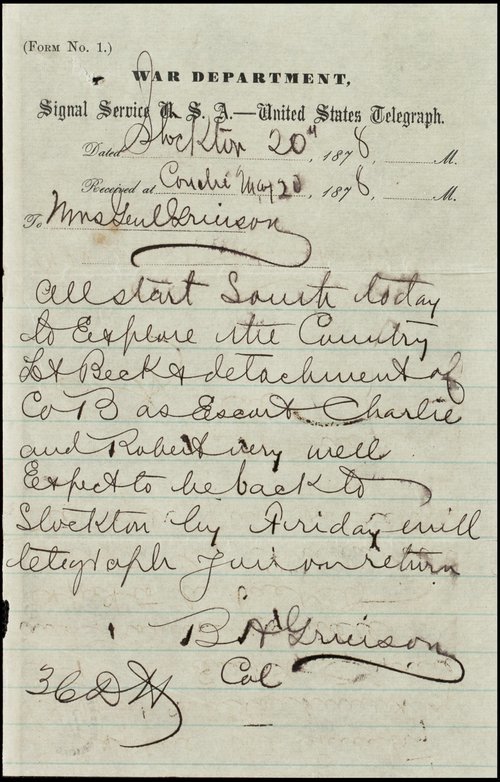 (Form No. 1.)
WAR DEPARTMENT,
Signal Service U. S. A.—United States Telegraph.
Dated Stockton 20th, 1878, M.
Received at Concho May 20, 1878, M.
To Mrs Genl Grierson
All start South today
to Explore the Country
Lt Beck & detachment of
Co B as Escort Charlie
and Robert very well
Expect to be back to
Stockton by Friday will
telegraph you on return
B H Grierson
Col
36 D H